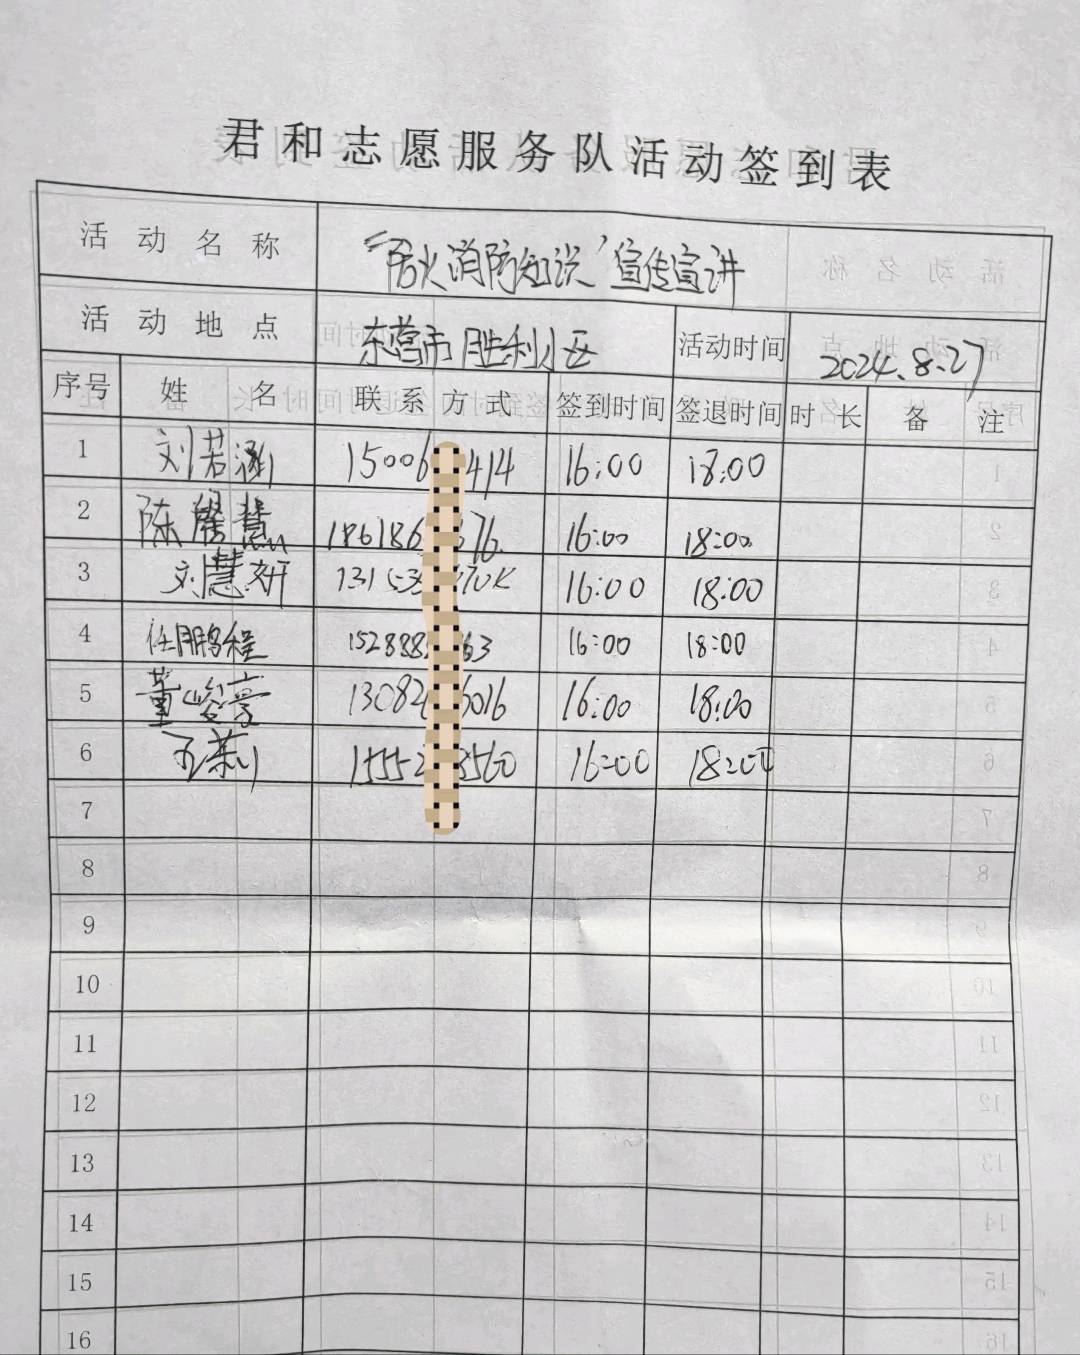 君和志愿服务队活动签到表
活动名称 “防火消防知识”宣传宣讲
活动地点 东营市胜利小区 活动时间 2024.8.27
序号 姓名 联系方式 签到时间 签退时间 时长 备注
1 刘若涵 15006 414 16:00 18:00
2 陈馨慧 186186 676. 16:00 18:00
3 刘慧妍 13153 16:00 18:00
4 任鹏程 152888 63 16:00 18:00
5 董峻豪 13082 6016 16:00 18:00
6 15552 3560 16:00 18:00
7
8
9
10
11
12
13
14
15
16